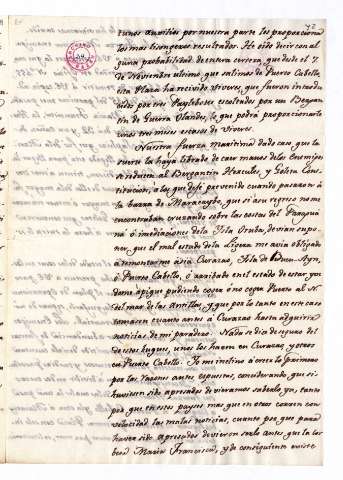 tunos auxilios por nuestra parte les proporciona
los mas lisongeros resultados. He oido decir con al
guna probabilidad de entera certeza, que desde el 7
de Noviembre ultimo que salimos de Puerto Cabello,
esta Plaza ha recivido viveres, que fueron introdu
cidos por tres Puylebotes escoltados por un Bergan
tin de Guerra Olandes, lo que podra proporcionarle
unos tres mises escasos de viveres.
Nuestra fuerza maritima dado caso que la
suerte la haya librado de caer manos de los Enemigos
se reducen al Bergantin Hercules, y Goleta Cons
titucion, a los que dejé prevenido cuando pasaron á
la barra de Maracaybo, que si a su regreso no me
encontraban cruzando sobre las costas del Paragua
ná ó imediaciones de la Ysla Oruba, devian supo
ner, que el mal estado de la Ligera me avia obligado
a meterme acia Curazao, Ysla de Buen-Ayre,
ó Puerto Cabello, ó arribada en el estado de estar yen
dome apique pudiendo coger ó no coger Puerto al N.
del mar de las Antillas, y que por lo tanto en este caso
tomasen cuanto antes á Curazao hasta adquirir
noticias de mi paradero. Nada se dia de seguro del
de estos buques, unos los hacen en Curazao, y otros
en Puerto Cabello. Yo me inclino á creer lo primero
por las razones antes espuestas, considerando, que si
huviesen sido apresados devieramos saberlo ya, tanto
por que en estos payses mas que en otros corren con
velocidad las malas noticias, cuanto por que para
haver sido apresados devieron serlo antes que la Cor
beta Maria Francisca, y de consiguiente existe